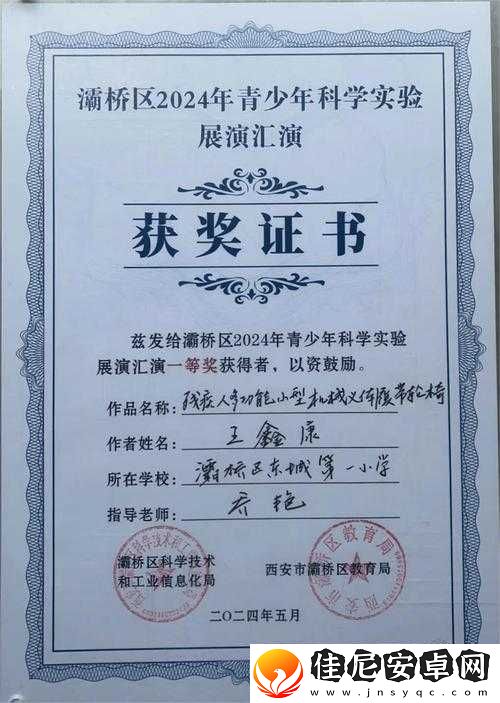 灞桥区2024年青少年科学实验
展演汇演
获奖证书
兹发给灞桥区2024年青少年科学实验
展演汇演一等奖获得者，以资鼓励。
作品名称：残疾人多功能小型机械义体履带轮椅
作者姓名：王鑫康
所在学校：灞桥区东城第一小学
指导老师：乔艳
灞桥区科学技术
和工业信息化局
西安市灞桥区教育局
西安市灞桥区教育局
二〇二四年五月
佳尼安卓网
www.jnsyqc.com